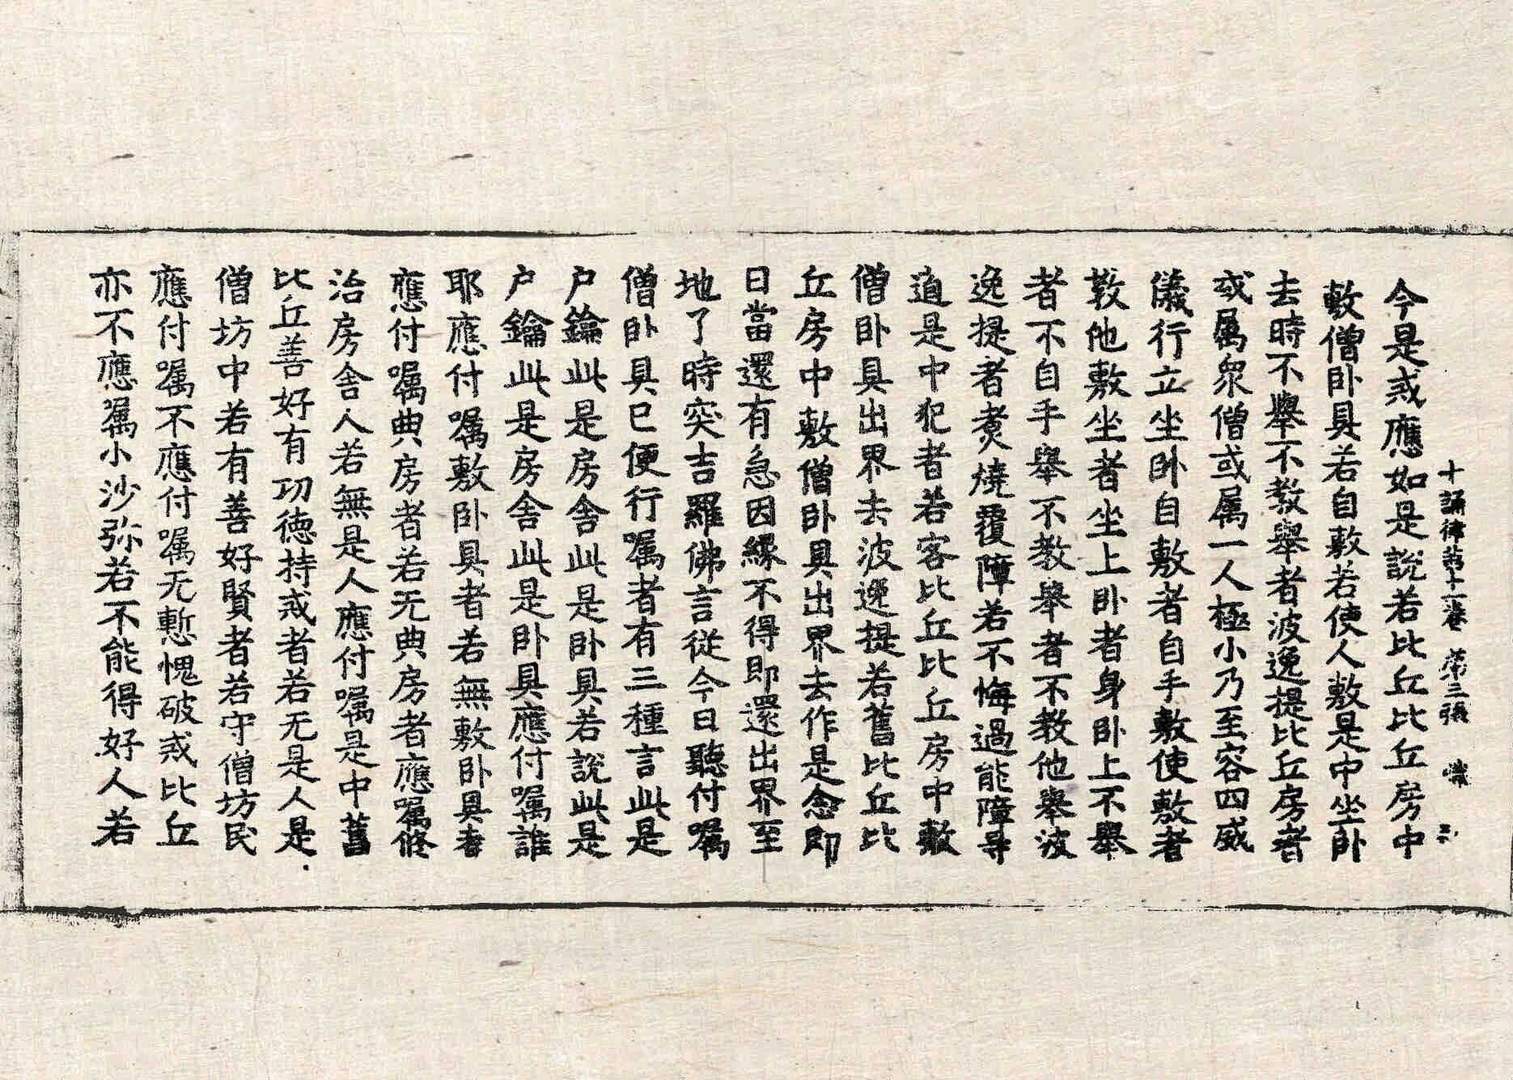 十誦律苐十一卷 苐三張 儀
今是戒應如是說若比丘比丘房中
敷僧卧具若自敷若使人敷是中坐卧
去時不舉不教舉者波逸提比丘房者
或属衆僧或属一人極小乃至容四威
儀行立坐卧自敷者自手敷使敷者
教他敷坐者坐上卧者身卧上不舉
者不自手舉不教舉者不教他舉波
逸提者煑燒覆障若不悔過能障㝵
道是中犯者若客比丘比丘房中敷
僧卧具出界去波逸提若舊比丘比
丘房中敷僧卧具出界去作是念即
日當還有急因緣不得即還出界至
地了時突吉羅佛言從今日聽付嘱
僧卧具已便行嘱者有三種言此是
户鑰此是房舍此是卧具若說此是
户鑰此是房舍此是卧具應付嘱誰
耶應付嘱敷卧具者若無敷卧具者
應付嘱典房者若无典房者應嘱修
治房舍人若無是人應付嘱是中舊
比丘善好有功德持戒者若无是人是
僧坊中若有善好賢者若守僧坊民
應付嘱不應付嘱无慙愧破戒比丘
亦不應嘱小沙弥若不能得好人若